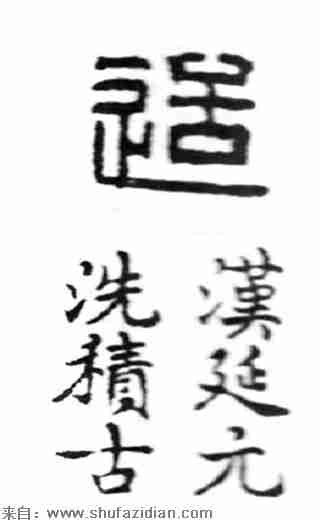 造
漢延元
洗積古
来自：www.shufazidian.com